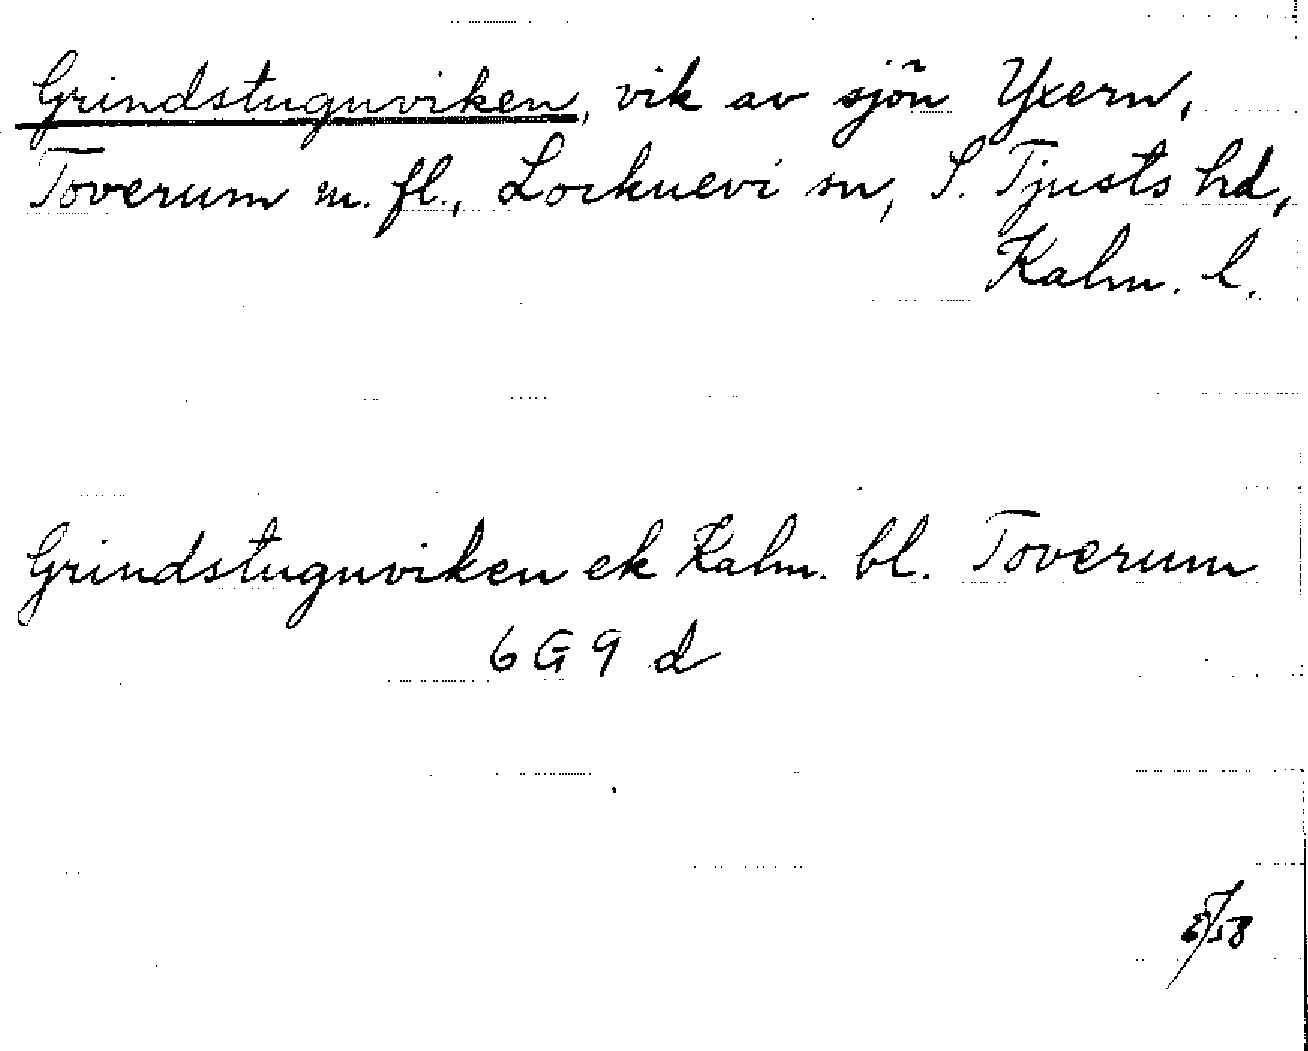 Grindstuguviken, vik av sjön Yxern,
Toverum m. fl., Locknevi sn, S. Tjusts hd,
Kalm. l.
Grindstuguviken ek Kalm. bl. Toverum
6 G 9 d